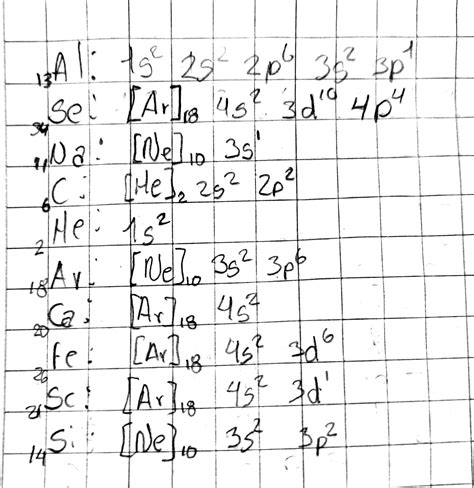 ₁₃Al: 1s² 2s² 2p⁶ 3s² 3p¹
₃₄Se: [Ar]₁₈ 4s² 3d¹⁰ 4p⁴
₁₁Na: [Ne]₁₀ 3s¹
₆C: [He]₂ 2s² 2p²
₂He: 1s²
₁₈Ar: [Ne]₁₀ 3s² 3p⁶
₂₀Ca: [Ar]₁₈ 4s²
₂₆Fe: [Ar]₁₈ 4s² 3d⁶
₂₁Sc: [Ar]₁₈ 4s² 3d¹
₁₄Si: [Ne]₁₀ 3s² 3p²